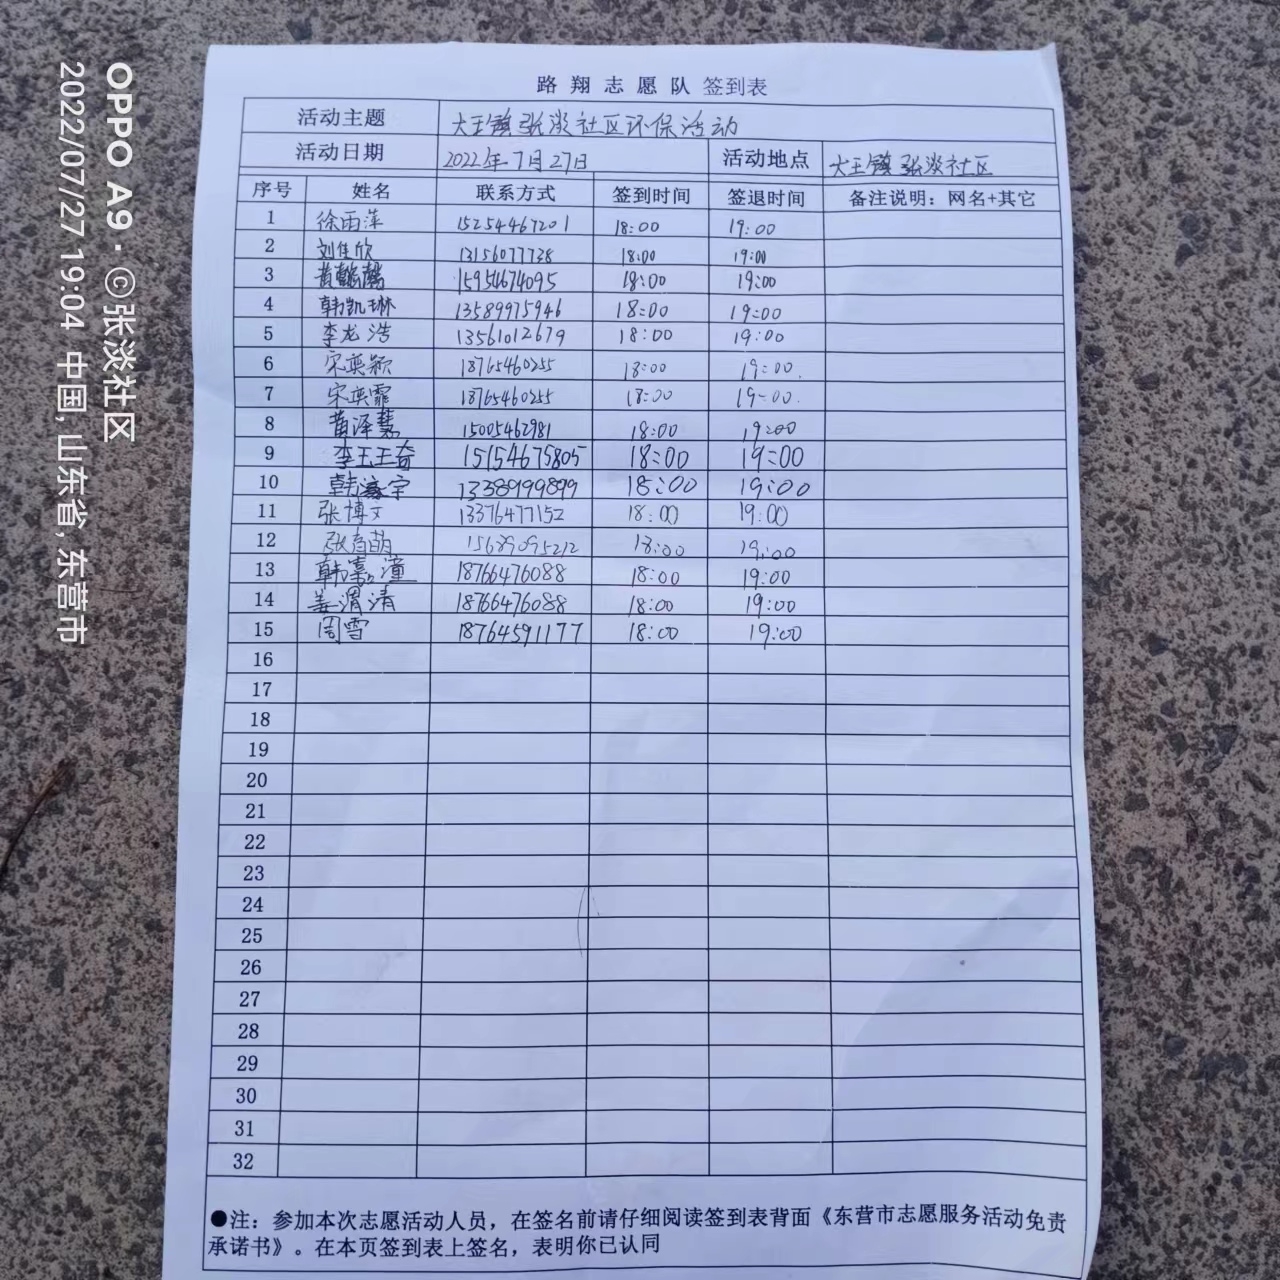 路翔志愿队 签到表
活动主题 大王镇张淡社区环保活动
活动日期 2022年7月27日 活动地点 大王镇张淡社区
序号 姓名 联系方式 签到时间 签退时间 备注说明：网名+其它
1 徐雨萍 15254467201 18:00 19:00
2 刘佳欣 13156077738 18:00 19:00
3 15954674095 18:00 19:00
4 韩凯琳 13589975946 18:00 19:00
5 李龙浩 13561012679 18:00 19:00
6 宋奕颖 18765460255 18:00 19:00
7 宋奕霏 18765460255 18:00 19:00
8 黄泽慧 15005462981 18:00 19:00
9 15154675805 18:00 19:00
10 13389999899 18:00 19:00
11 张博文 13376477152 18:00 19:00
12 15689095212 18:00 19:00
13 18766476088 18:00 19:00
14 姜渭清 18766476088 18:00 19:00
15 周雪 18764591177 18:00 19:00
16
17
18
19
20
21
22
23
24
25
26
27
28
29
30
31
32
●注：参加本次志愿活动人员，在签名前请仔细阅读签到表背面《东营市志愿服务活动免责
承诺书》。在本页签到表上签名，表明你已认同
OPPO A9 · ©张淡社区
2022/07/27 19:04 中国,山东省,东营市